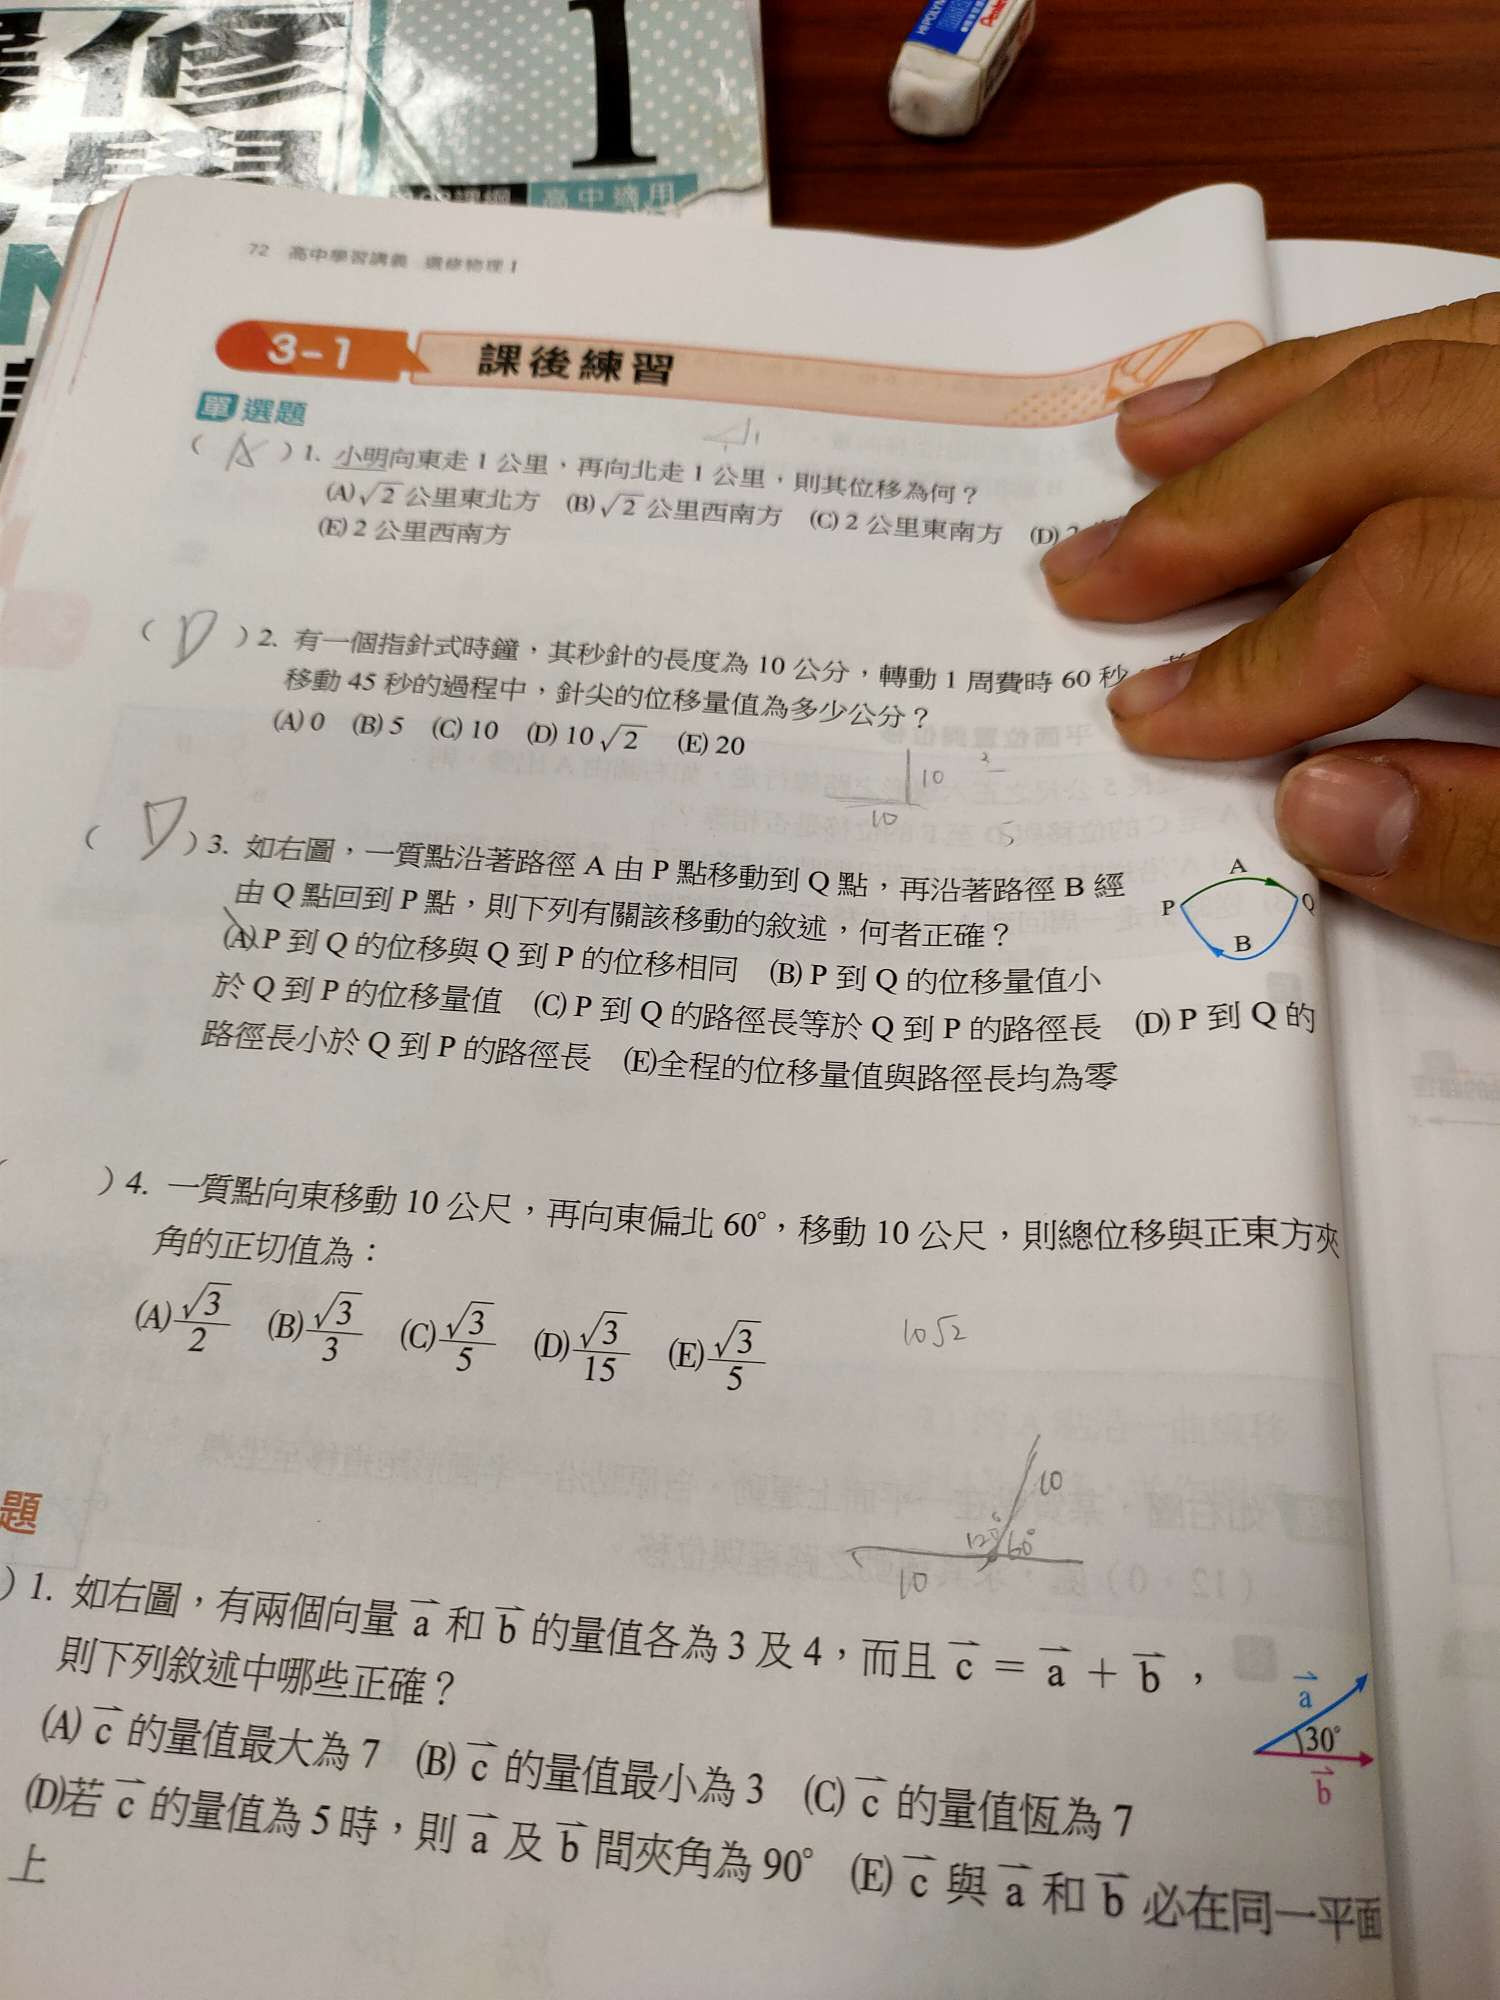 修
1
高中適用
HI-POLYM
Pentel
72 高中學習講義 選修物理 I
3-1 課後練習
單選題
( A )1. 小明向東走 1 公里，再向北走 1 公里，則其位移為何？
(A)√2 公里東北方 (B)√2 公里西南方 (C) 2 公里東南方 (D) 2
(E) 2 公里西南方
1
1
( D )2. 有一個指針式時鐘，其秒針的長度為 10 公分，轉動 1 周費時 60 秒
移動 45 秒的過程中，針尖的位移量值為多少公分？
(A) 0 (B) 5 (C) 10 (D) 10√2 (E) 20
10
10
( D )3. 如右圖，一質點沿著路徑 A 由 P 點移動到 Q 點，再沿著路徑 B 經
由 Q 點回到 P 點，則下列有關該移動的敘述，何者正確？
(A) P 到 Q 的位移與 Q 到 P 的位移相同 (B) P 到 Q 的位移量值小
於 Q 到 P 的位移量值 (C) P 到 Q 的路徑長等於 Q 到 P 的路徑長 (D) P 到 Q 的
路徑長小於 Q 到 P 的路徑長 (E)全程的位移量值與路徑長均為零
A
P
Q
B
)4. 一質點向東移動 10 公尺，再向東偏北 60°，移動 10 公尺，則總位移與正東方夾
角的正切值為：
(A)√3/2 (B)√3/3 (C)√3/5 (D)√3/15 (E)√3/5
10√2
10
120° 60°
10
題
)1. 如右圖，有兩個向量 a⃗ 和 b⃗ 的量值各為 3 及 4，而且 c⃗ ＝ a⃗ ＋ b⃗，
則下列敘述中哪些正確？
(A) c⃗ 的量值最大為 7 (B) c⃗ 的量值最小為 3 (C) c⃗ 的量值恆為 7
(D)若 c⃗ 的量值為 5 時，則 a⃗ 及 b⃗ 間夾角為 90° (E) c⃗ 與 a⃗ 和 b⃗ 必在同一平面
上
a⃗
30°
b⃗